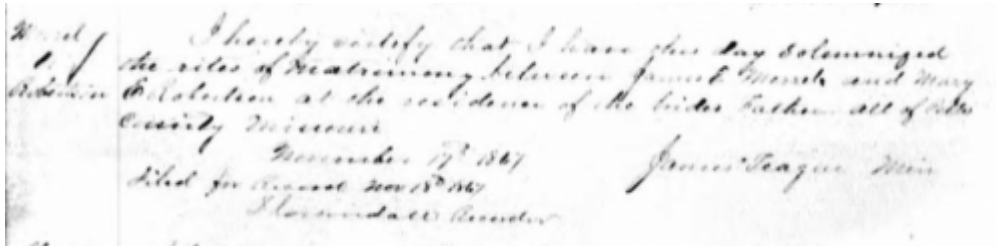 I hereby certify that I have this day solemnized
the rites of Matrimony between James Morrel and Mary
E Robertson at the residence of the brides Father all of
County Missouri
November 17th 1867
James Teague Min
Filed for Record Nov 18th 1867
Recorder